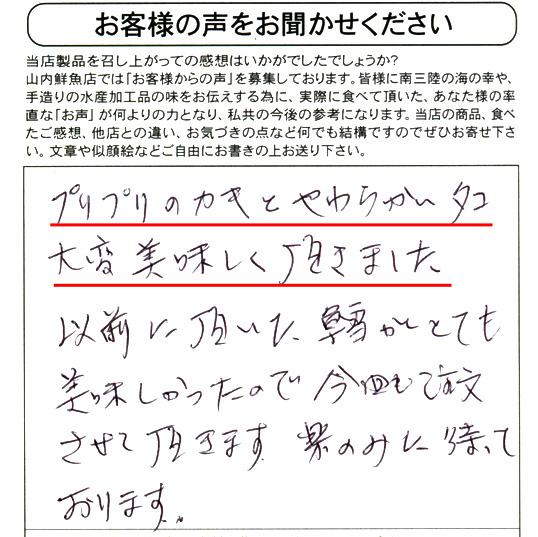 お客様の声をお聞かせください
当店製品を召し上がっての感想はいかがでしたでしょうか?
山内鮮魚店では「お客様からの声」を募集しております。皆様に南三陸の海の幸や、
手造りの水産加工品の味をお伝えする為に、実際に食べて頂いた、あなた様の率
直な「お声」が何よりの力となり、私共の今後の参考になります。当店の商品、食べ
たご感想、他店との違い、お気づきの点など何でも結構ですのでぜひお寄せ下さ
い。文章や似顔絵などご自由にお書きの上お送り下さい。
プリプリのカキとやわらかいタコ
大変美味しく頂きました
以前に頂いた がとても
美味しかったので今回も注文
させて頂きます 楽のみに待って
おります。